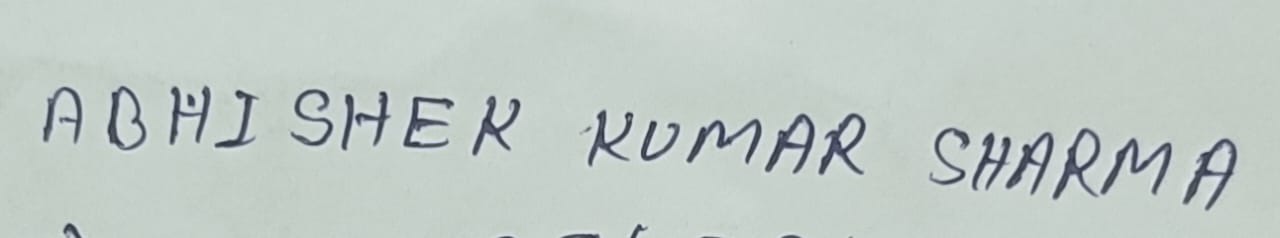 ABHISHEK KUMAR SHARMA